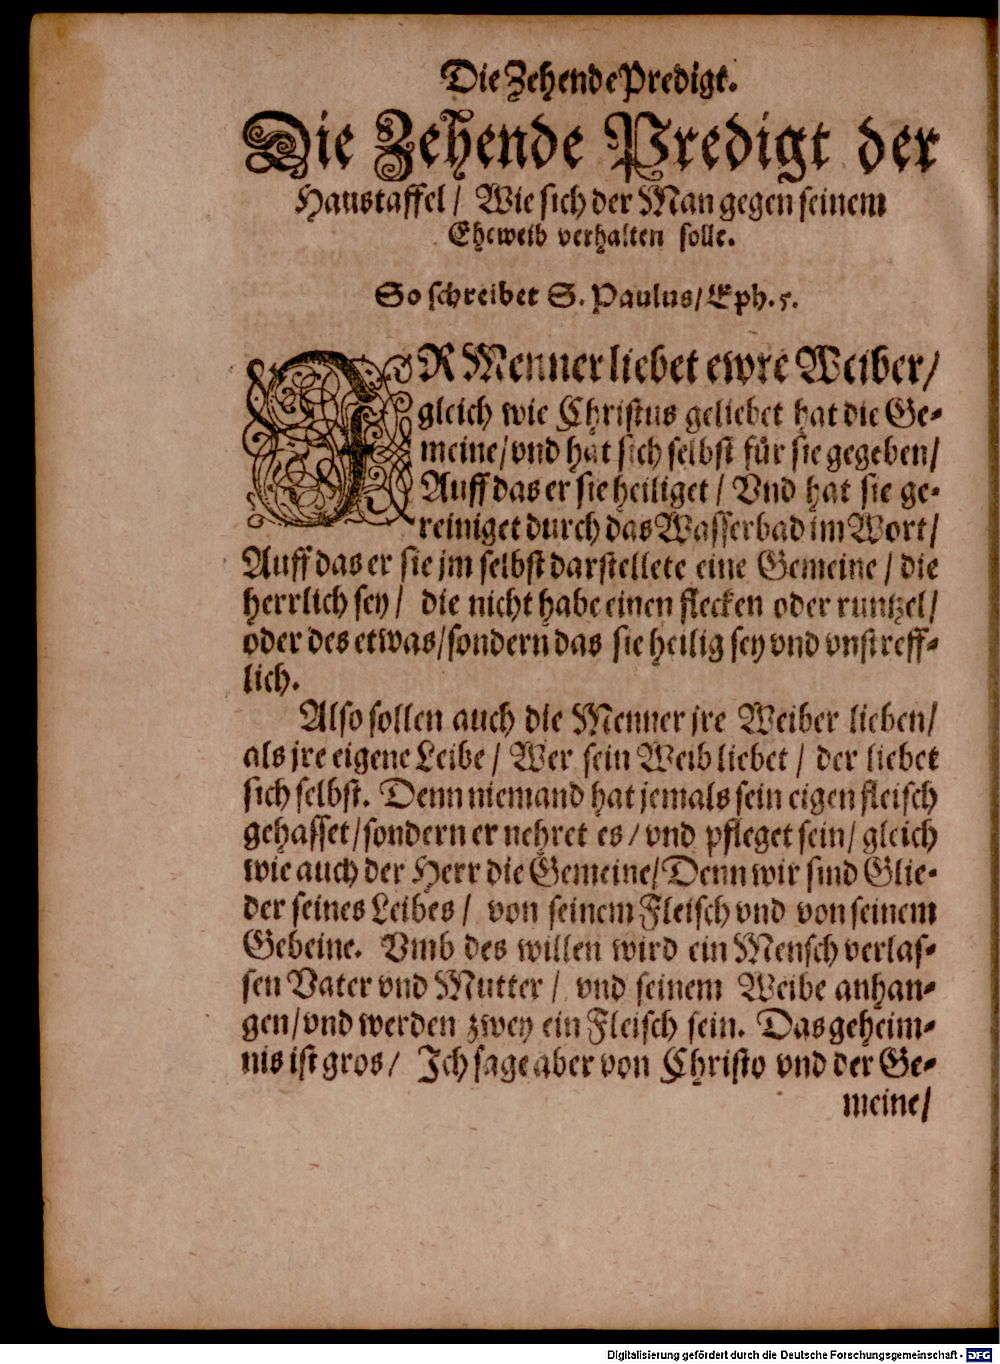 Die Zehende Predigt.
Die Zehende Predigt der
Haustaffel / Wie sich der Man gegen seinem
Eheweib verhalten solle.
So schreibet S. Paulus / Eph. 5.
JR Menner liebet ewre Weiber /
gleich wie Christus geliebet hat die Ge-
meine / vnd hat sich selbst für sie gegeben /
Auff das er sie heiliget / Vnd hat sie ge-
reiniget durch das Wasserbad im Wort /
Auff das er sie jm selbst darstellete eine Gemeine / die
herrlich sey / die nicht habe einen flecken oder runtzel /
oder des etwas / sondern das sie heilig sey vnd vnstreff-
lich.
Also sollen auch die Menner jre Weiber lieben /
als jre eigene Leibe / Wer sein Weib liebet / der liebet
sich selbst. Denn niemand hat jemals sein eigen fleisch
gehasset / sondern er nehret es / vnd pfleget sein / gleich
wie auch der Herr die Gemeine / Denn wir sind Glie-
der seines Leibes / von seinem Fleisch vnd von seinem
Gebeine. Vmb des willen wird ein Mensch verlas-
sen Vater vnd Mutter / vnd seinem Weibe anhan-
gen / vnd werden zwey ein Fleisch sein. Das geheim-
nis ist gros / Jch sage aber von Christo vnd der Ge-
meine /
Digitalisierung gefördert durch die Deutsche Forschungsgemeinschaft - DFG